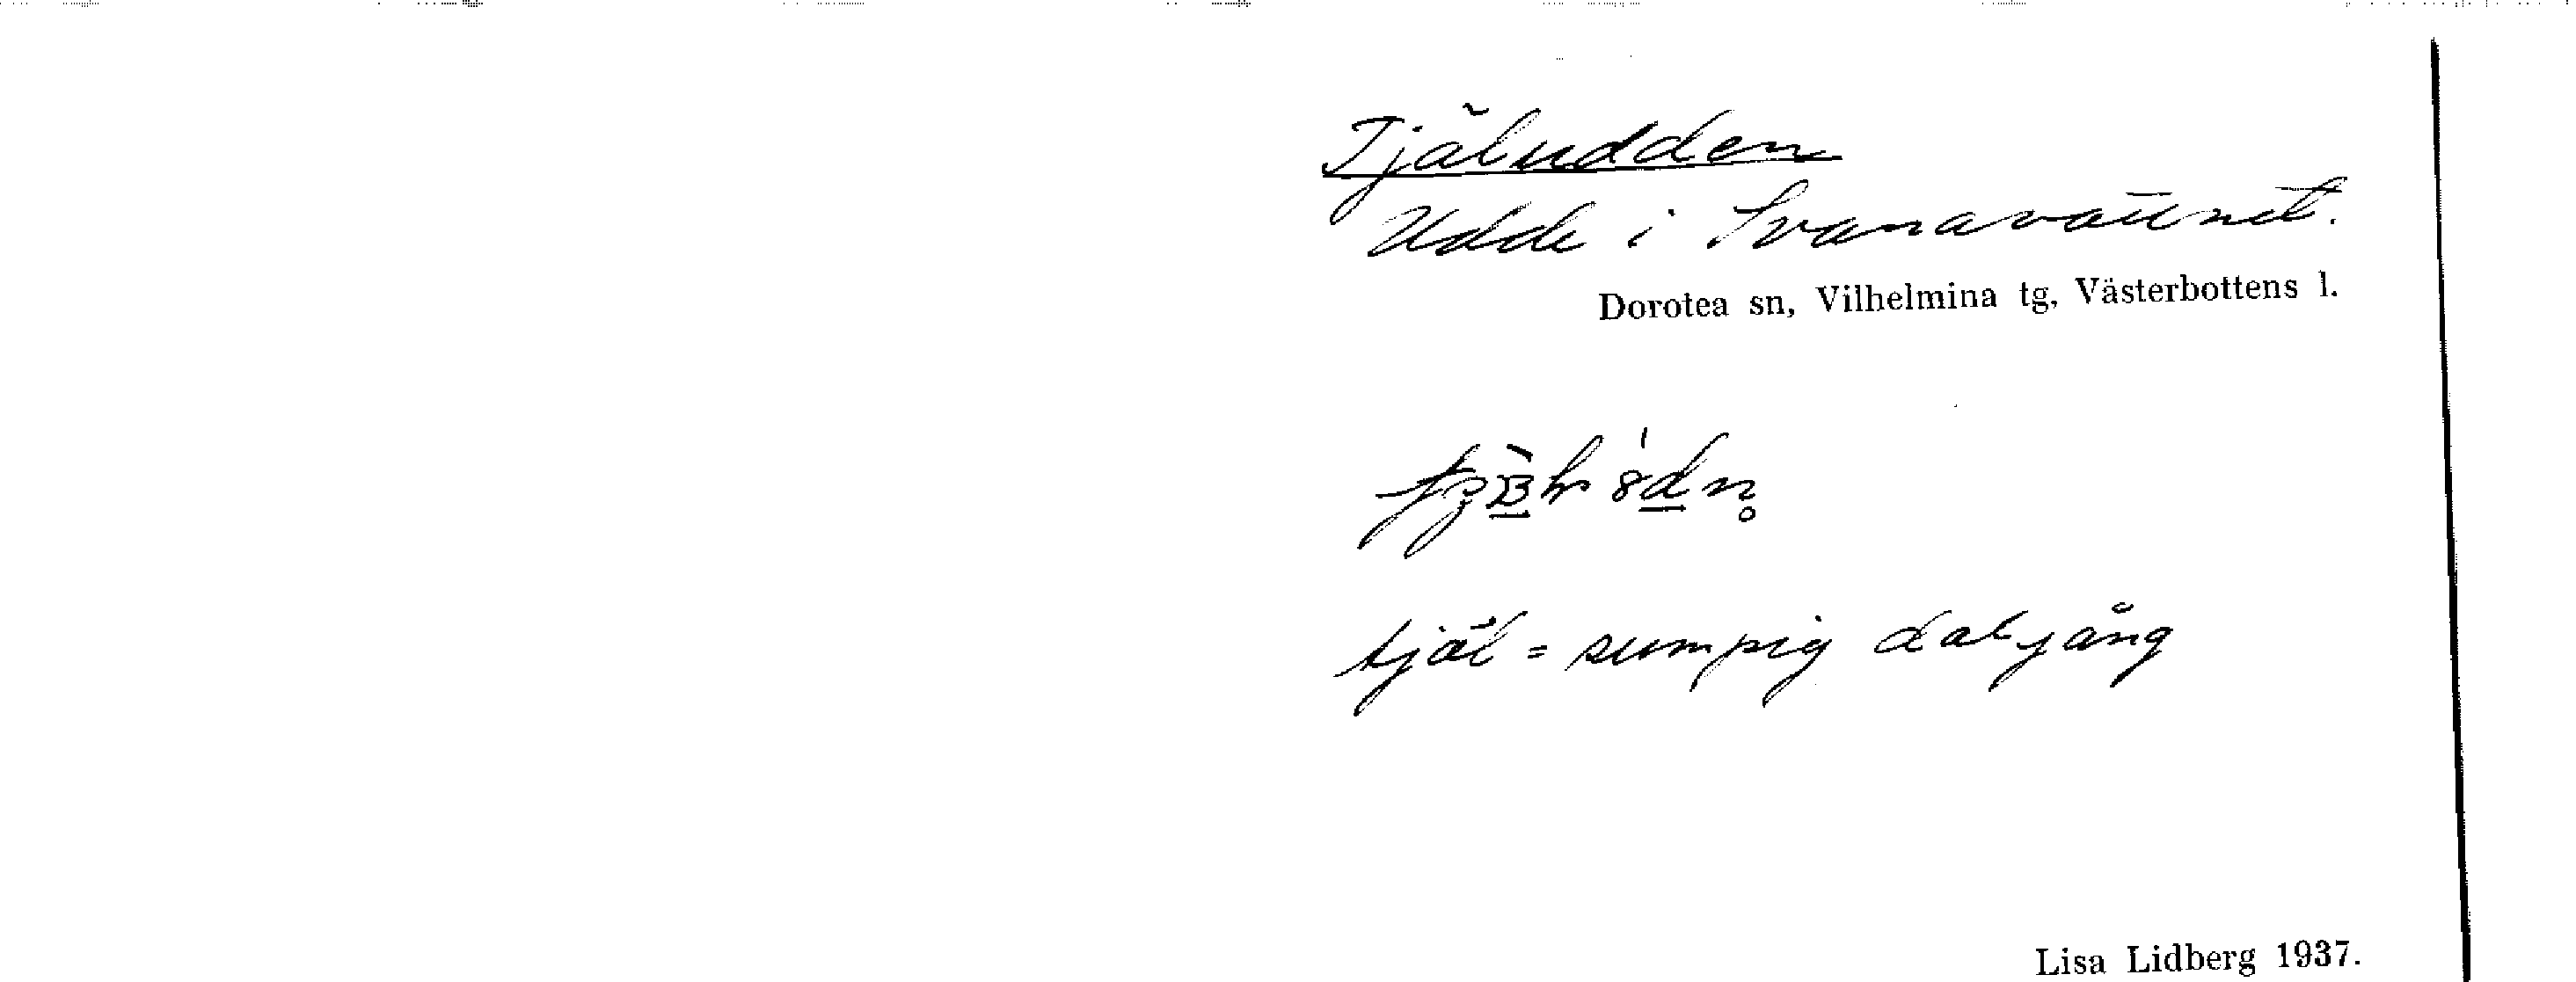 Tjäludden
Udde i Svanavattnet.
Dorotea sn, Vilhelmina tg, Västerbottens l.
tjäl = sumpig dalgång
Lisa Lidberg 1937.